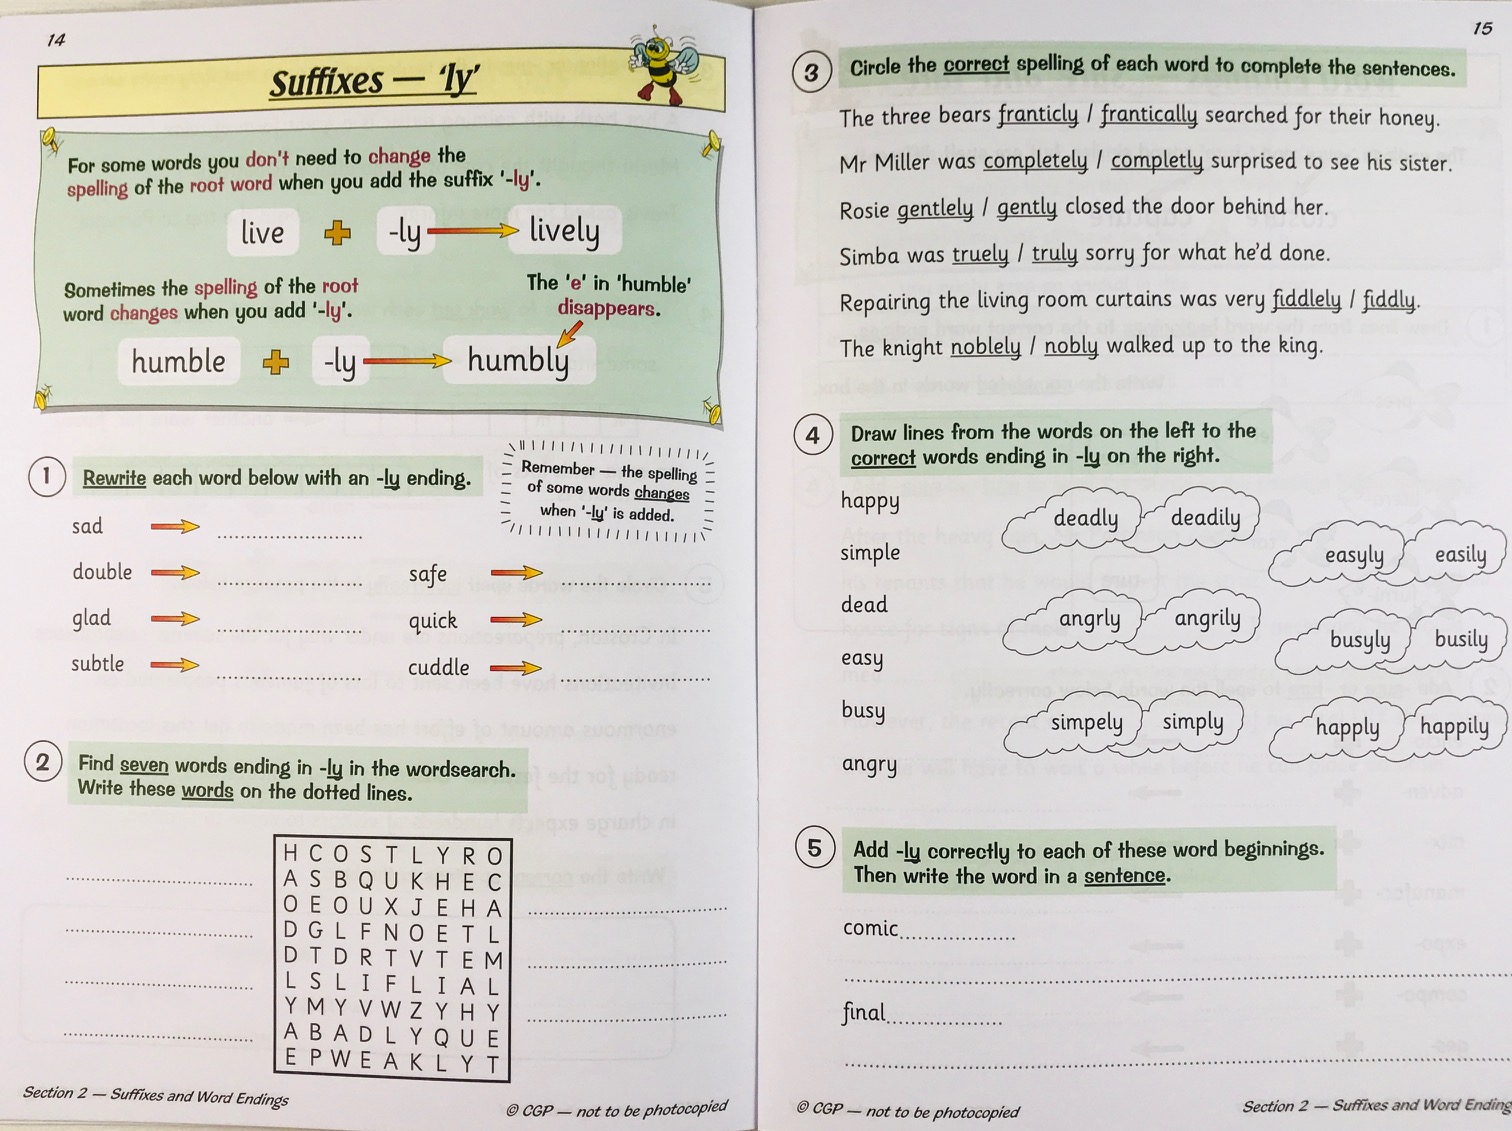 14
Suffixes — 'ly'
For some words you don't need to change the
spelling of the root word when you add the suffix '-ly'.
live + -ly lively
Sometimes the spelling of the root
word changes when you add '-ly'.
The 'e' in 'humble'
disappears.
humble + -ly humbly
1 Rewrite each word below with an -ly ending.
Remember — the spelling
of some words changes
when '-ly' is added.
sad
double
safe
glad
quick
subtle
cuddle
2 Find seven words ending in -ly in the wordsearch.
Write these words on the dotted lines.
H C O S T L Y R O
A S B Q U K H E C
O E O U X J E H A
D G L F N O E T L
D T D R T V T E M
L S L I F L I A L
Y M Y V W Z Y H Y
A B A D L Y Q U E
E P W E A K L Y T
Section 2 — Suffixes and Word Endings
© CGP — not to be photocopied
15
3 Circle the correct spelling of each word to complete the sentences.
The three bears franticly / frantically searched for their honey.
Mr Miller was completely / completly surprised to see his sister.
Rosie gentlely / gently closed the door behind her.
Simba was truely / truly sorry for what he'd done.
Repairing the living room curtains was very fiddlely / fiddly.
The knight noblely / nobly walked up to the king.
4 Draw lines from the words on the left to the
correct words ending in -ly on the right.
happy
simple
dead
easy
busy
angry
deadly deadily
easyly easily
angrly angrily
busyly busily
simpely simply
happly happily
5 Add -ly correctly to each of these word beginnings.
Then write the word in a sentence.
comic
final
© CGP — not to be photocopied
Section 2 — Suffixes and Word Ending